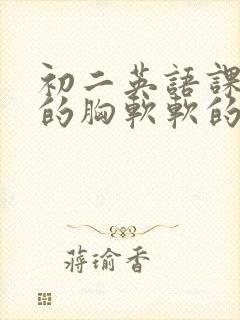 初二英語課
的胸軟軟的
蔣瑜香